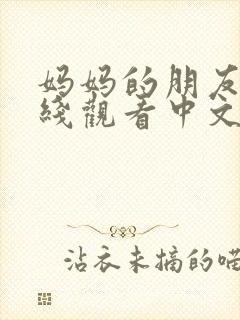 妈妈的朋友
綫觀看中文
沾衣未摘的喵